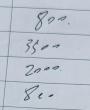 800.
3500
2000.
800